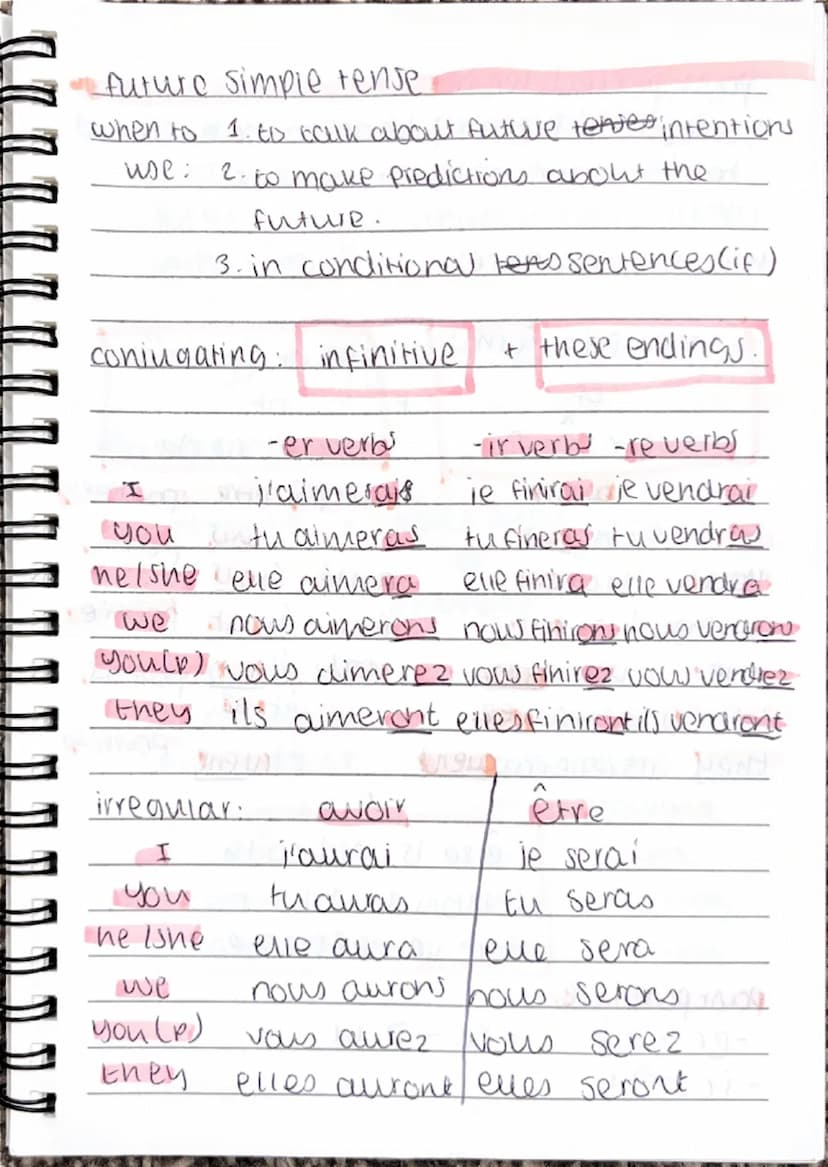 future simple tense
when to 1. to talk about future tenses intentions
use: 2. to make predictions about the
future.
3. in conditional tens sentences (if)
conjugating: infinitive + these endings.
-er verbs -ir verbs -re verbs
I j'aimerais je finirai je vendrai
you tu aimeras tu fineras tu vendras
he/she elle aimera elle finira elle vendra
we nous aimerons nous finirons nous vendrons
you(p) vous aimerez vous finirez vous vendrez
they ils aimeront elles finiront ils vendront
irregular: avoir être
I j'aurai je serai
you tu auras tu seras
he/she elle aura elle sera
we nous aurons nous serons
you(p) vous aurez vous serez
they elles auront elles seront